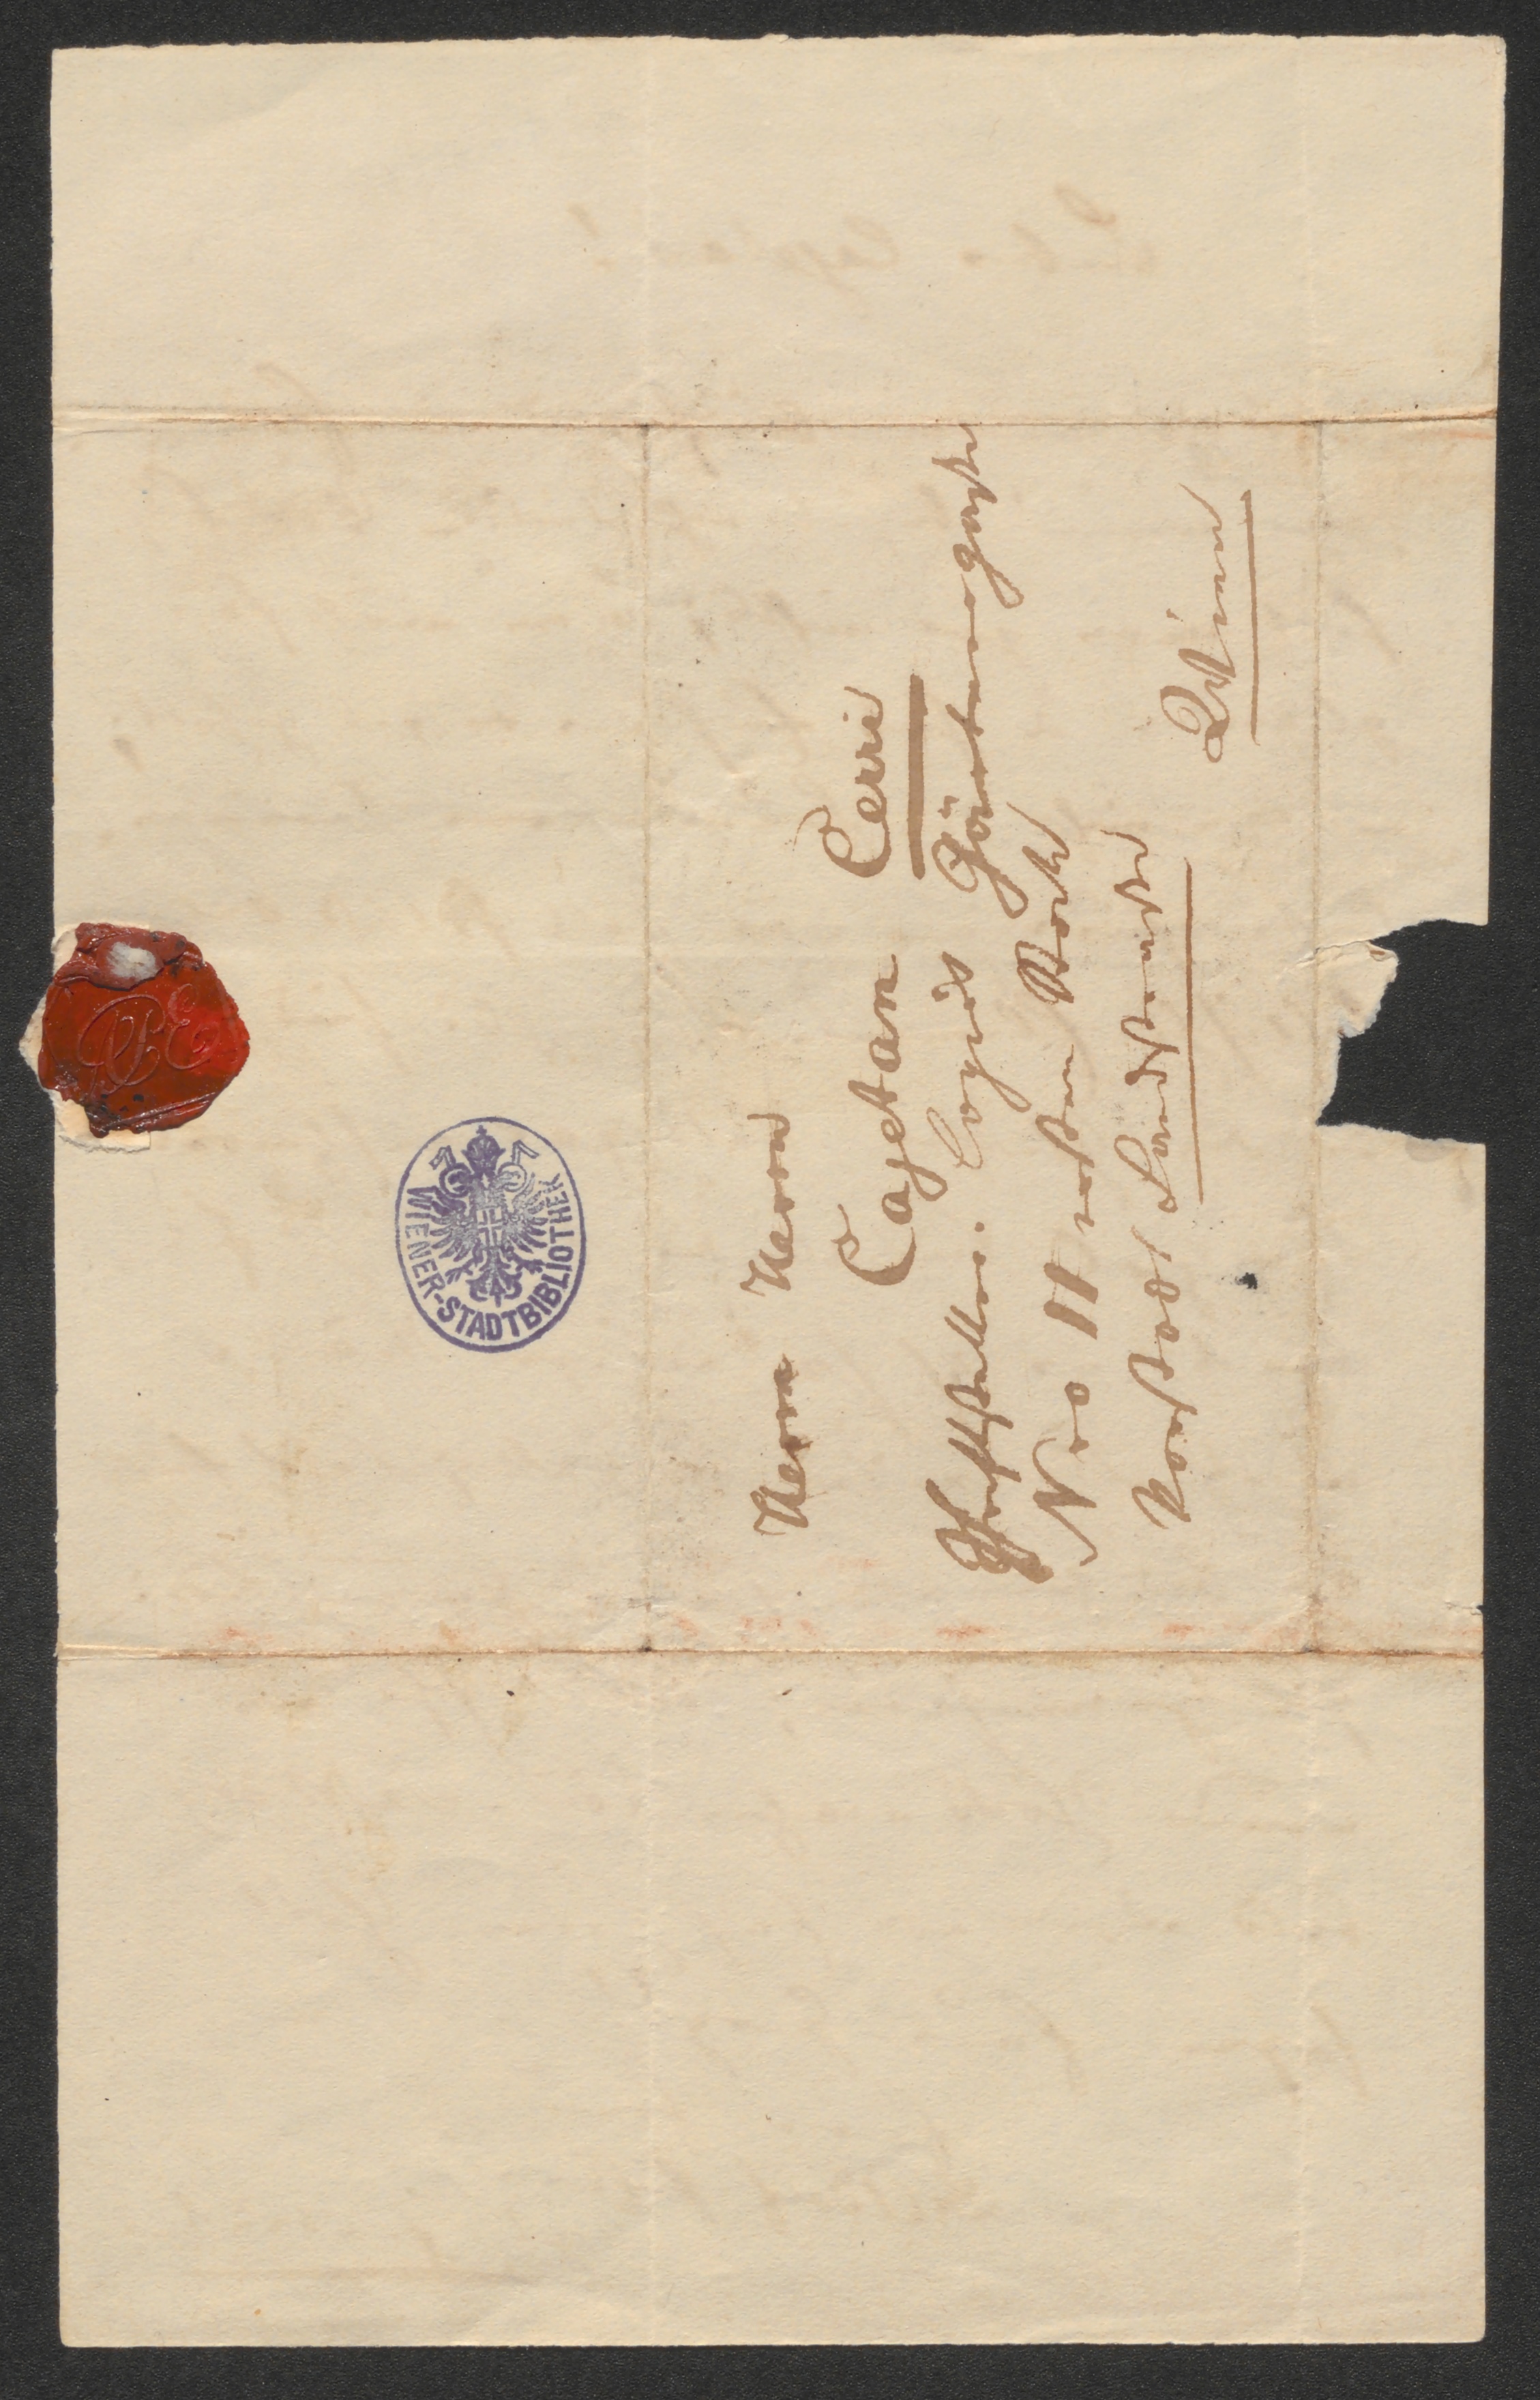 Herrn Herrn
Cajetan Cerri
Schriftsteller. Logirt Gärtnergasse
Nro 11 ersten Stock
Vorstadt Landstrasse
Wien
WIENER-STADTBIBLIOTHEK